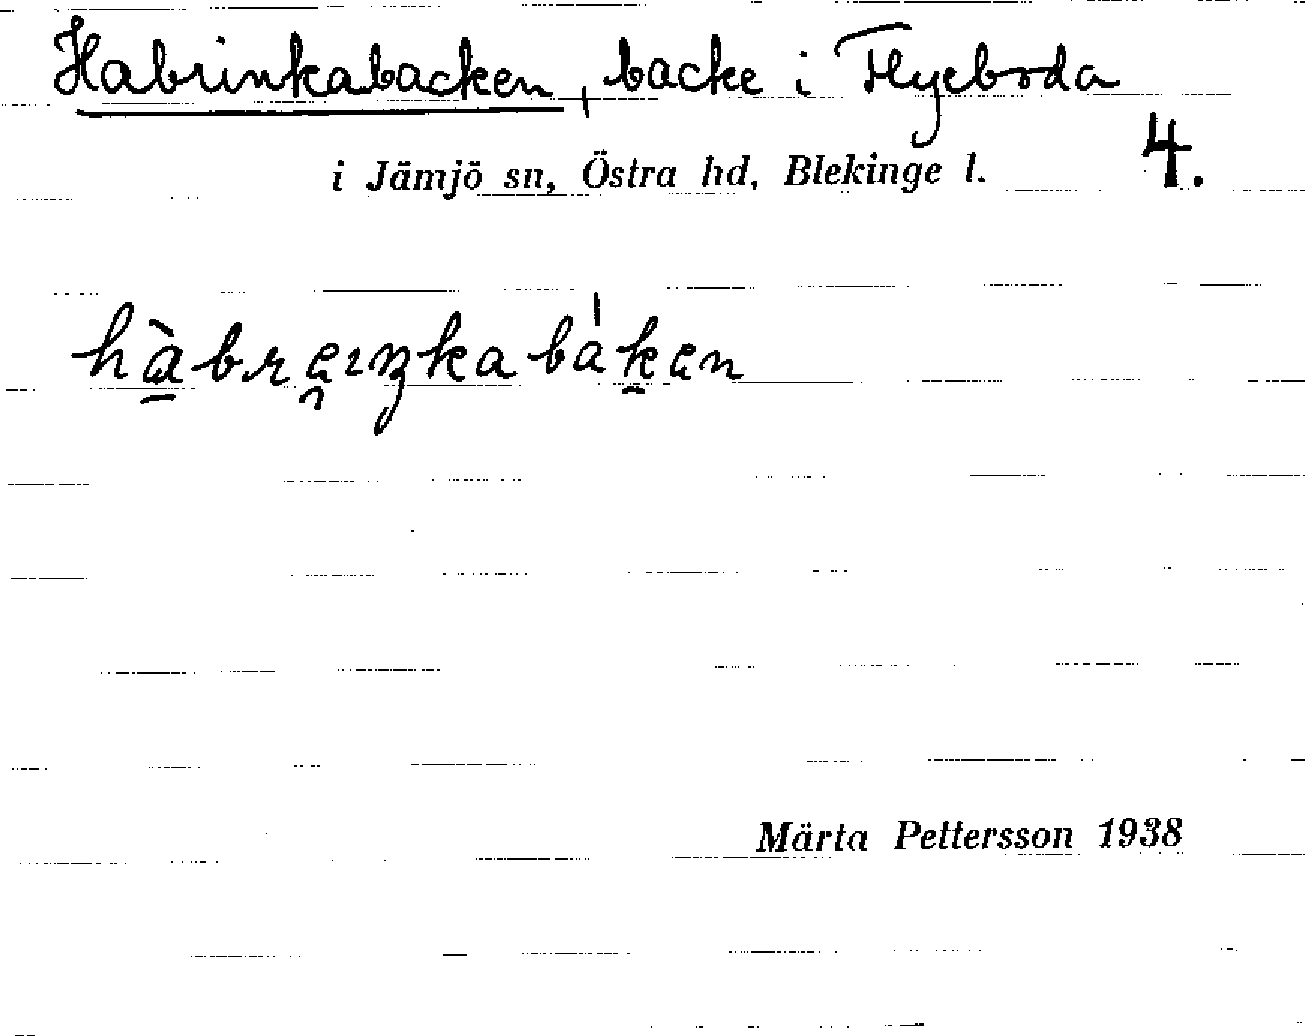 Habrinkabacken, backe i Flyeboda
4.
i Jämjö sn, Östra hd, Blekinge l.
Märta Pettersson 1938